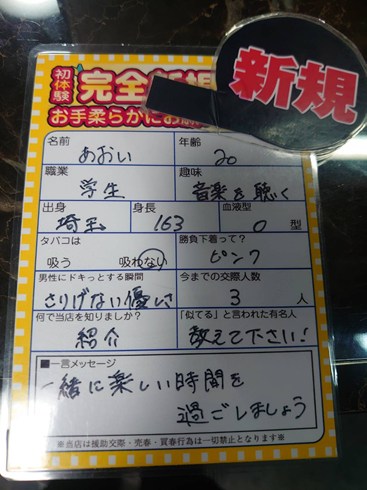 初体験
完全新規
お手柔らかにお願
新規
名前 あおい 年齢 20
職業 学生 趣味 音楽を聴く
出身 埼玉 身長 163 血液型 O 型
タバコは 吸う 吸わない 勝負下着って? ピンク
男性にドキっとする瞬間 さりげない優しさ 今までの交際人数 3 人
何で当店を知りましたか? 紹介 「似てる」と言われた有名人 教えて下さい!
■一言メッセージ
一緒に楽しい時間を
過ごしましょう
※当店は援助交際・売春・買春行為は一切禁止となります※